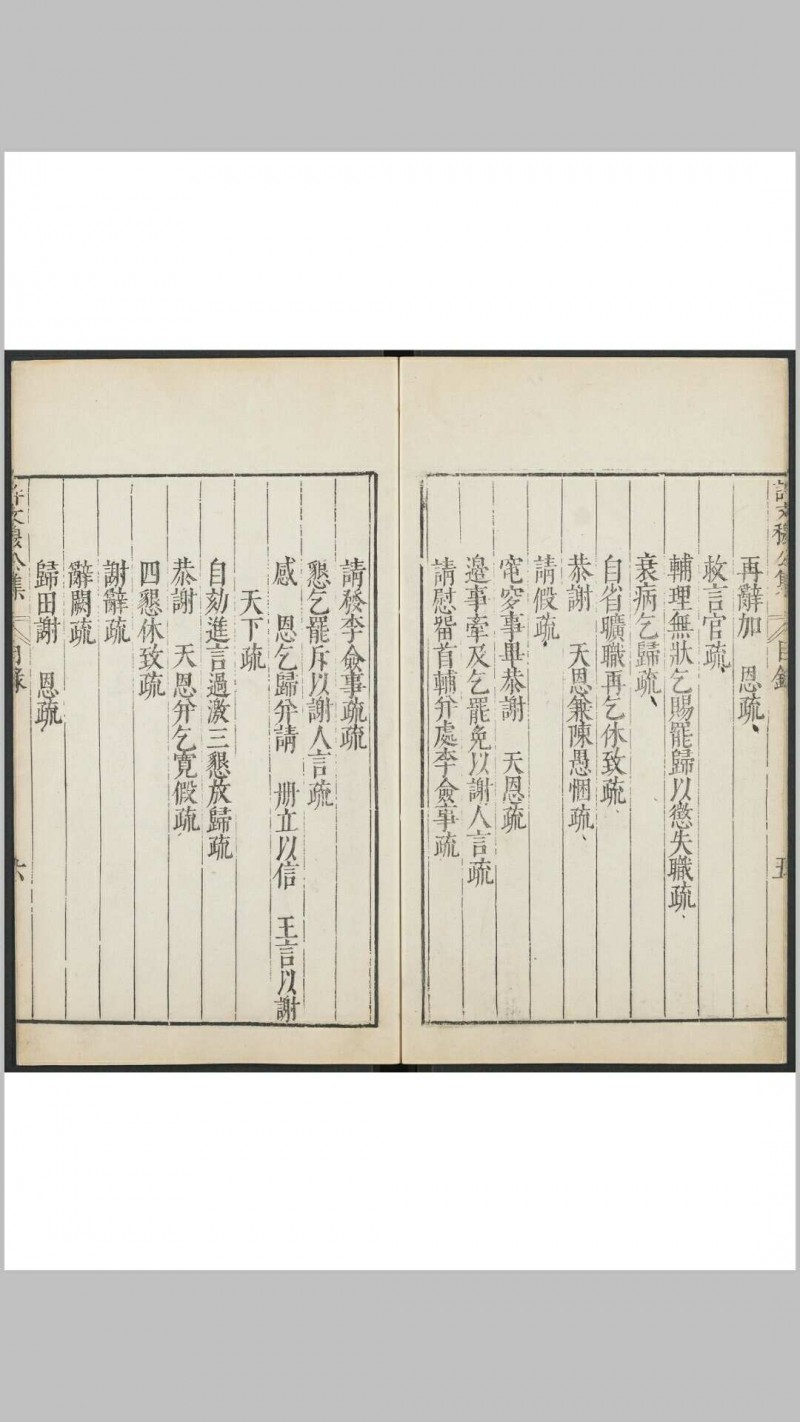 許文穆公集 目錄 五
再辭加 恩疏
救言官疏
輔理無狀乞賜罷歸以懲失職疏
衰病乞歸疏
自省曠職再乞休致疏
恭謝 天恩兼陳愚悃疏
請假疏
窀穸事畢恭謝 天恩疏
邊事牽及乞罷免以謝人言疏
請慰畱首輔并處李僉事疏
請發李僉事疏疏
懇乞罷斥以謝人言疏
感 恩乞歸并請 冊立以信 王言以謝
天下疏
自劾進言過激三懇放歸疏
恭謝 天恩并乞寬假疏
四懇休致疏
謝辭疏
辭闕疏
歸田謝 恩疏
許文穆公集 目錄 六